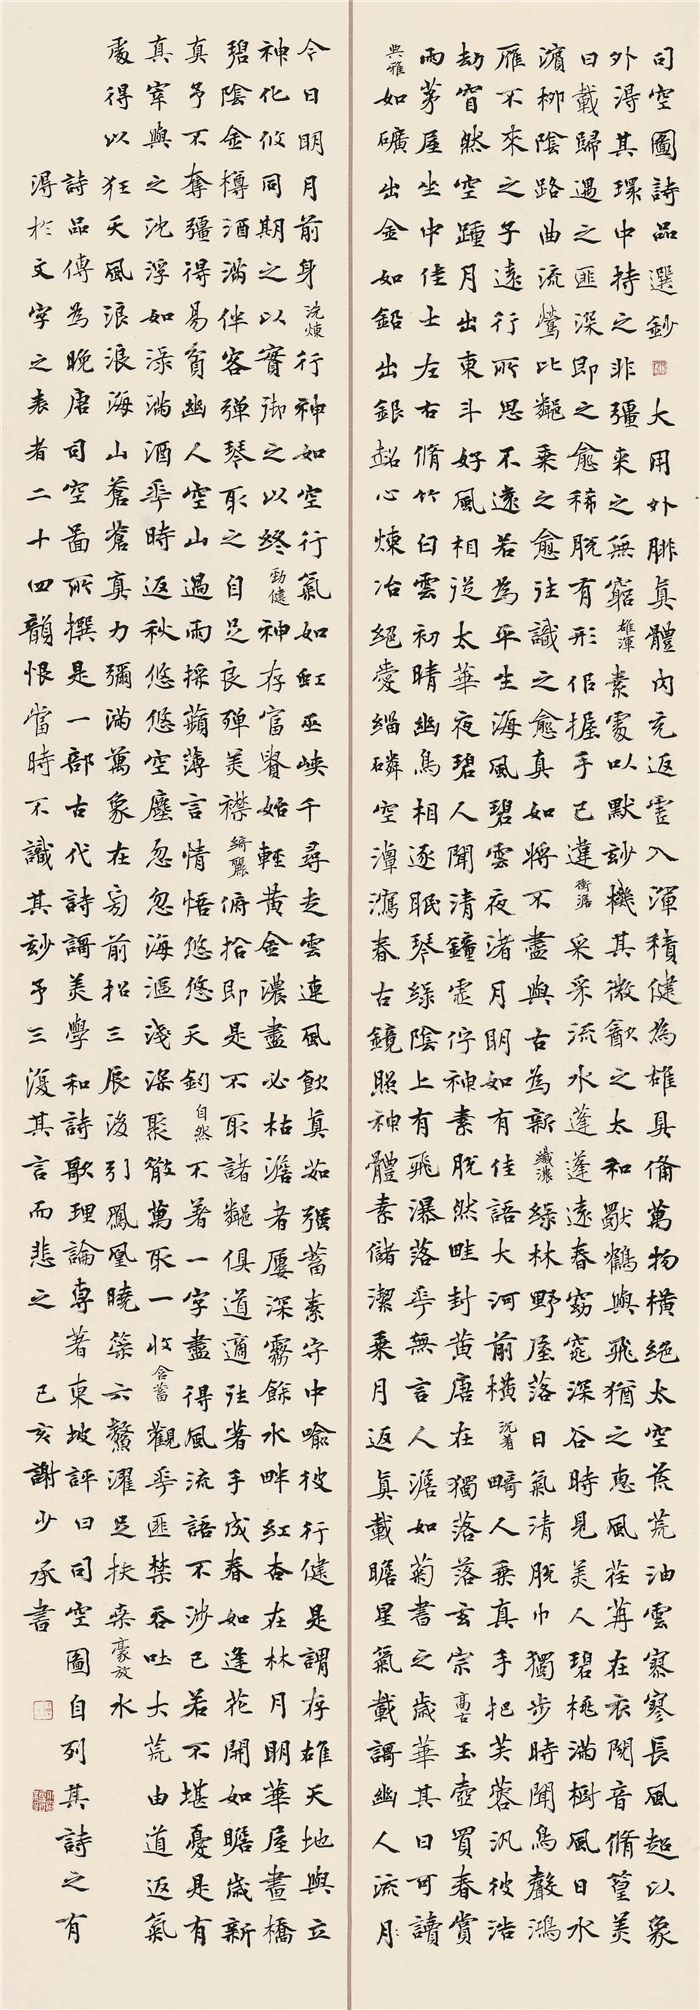 司空圖詩品選鈔 大用外腓真體內充返虛入渾積健為雄具備萬物橫絕太空荒荒油雲寥寥長風超以象
外得其環中持之非彊來之無窮 雄渾 素處以默妙機其微飲之太和獨鶴與飛猶之惠風荏苒在衣閱音脩篁美
曰載歸遇之匪深即之愈稀脫有形似握手已違 衝澹 采采流水蓬蓬遠春窈窕深谷時見美人碧桃滿樹風日水
濱柳陰路曲流鶯比鄰乘之愈往識之愈真如將不盡與古為新 纖濃 綠林野屋落日氣清脫巾獨步時聞鳥聲鴻
雁不來之子遠行所思不遠若為平生海風碧雲夜渚月明如有佳語大河前橫 沈著 畸人乘真手把芙蓉汎彼浩
劫窅然空蹤月出東斗好風相從太華夜碧人聞清鐘虛佇神素脫然畦封黃唐在獨落落玄宗 高古 玉壺買春賞
雨茅屋坐中佳士左右脩竹白雲初晴幽鳥相逐眠琴綠陰上有飛瀑落花無言人澹如菊書之歲華其曰可讀
典雅 如礦出金如鉛出銀超心煉冶絕愛緇磷空潭瀉春古鏡照神體素儲潔乘月返真載瞻星氣載謌幽人流月
今日明月前身 洗煉 行神如空行氣如虹巫峽千尋走雲連風飲真茹強蓄素守中喻彼行健是謂存雄天地與立
神化攸同期之以實御之以終 勁健 神存富貴始輕黃金濃盡必枯澹者屢深霧餘水畔紅杏在林月明華屋畫橋
碧陰金樽酒滿伴客彈琴取之自足良殫美襟 綺麗 俯拾即是不取諸鄰俱道適往著手成春如逢花開如瞻歲新
真予不奪彊得易貧幽人空山過雨採蘋薄言情悟悠悠天鈞 自然 不著一字盡得風流語不涉己若不堪憂是有
真宰與之沈浮如淥滿酒花時返秋悠悠空塵忽忽海漚淺深聚散萬取一收 含蓄 觀花匪禁吞吐大荒由道返氣
處得以狂天風浪浪海山蒼蒼真力彌滿萬象在旁前招三辰後引鳳凰曉策六鰲濯足扶桑 豪放 水
詩品傳為晚唐司空圖所撰是一部古代詩謌美學和詩歌理論專著東坡評曰司空圖自列其詩之有
得於文字之表者二十四韻恨當時不識其妙予三復其言而悲之 己亥謝少承書